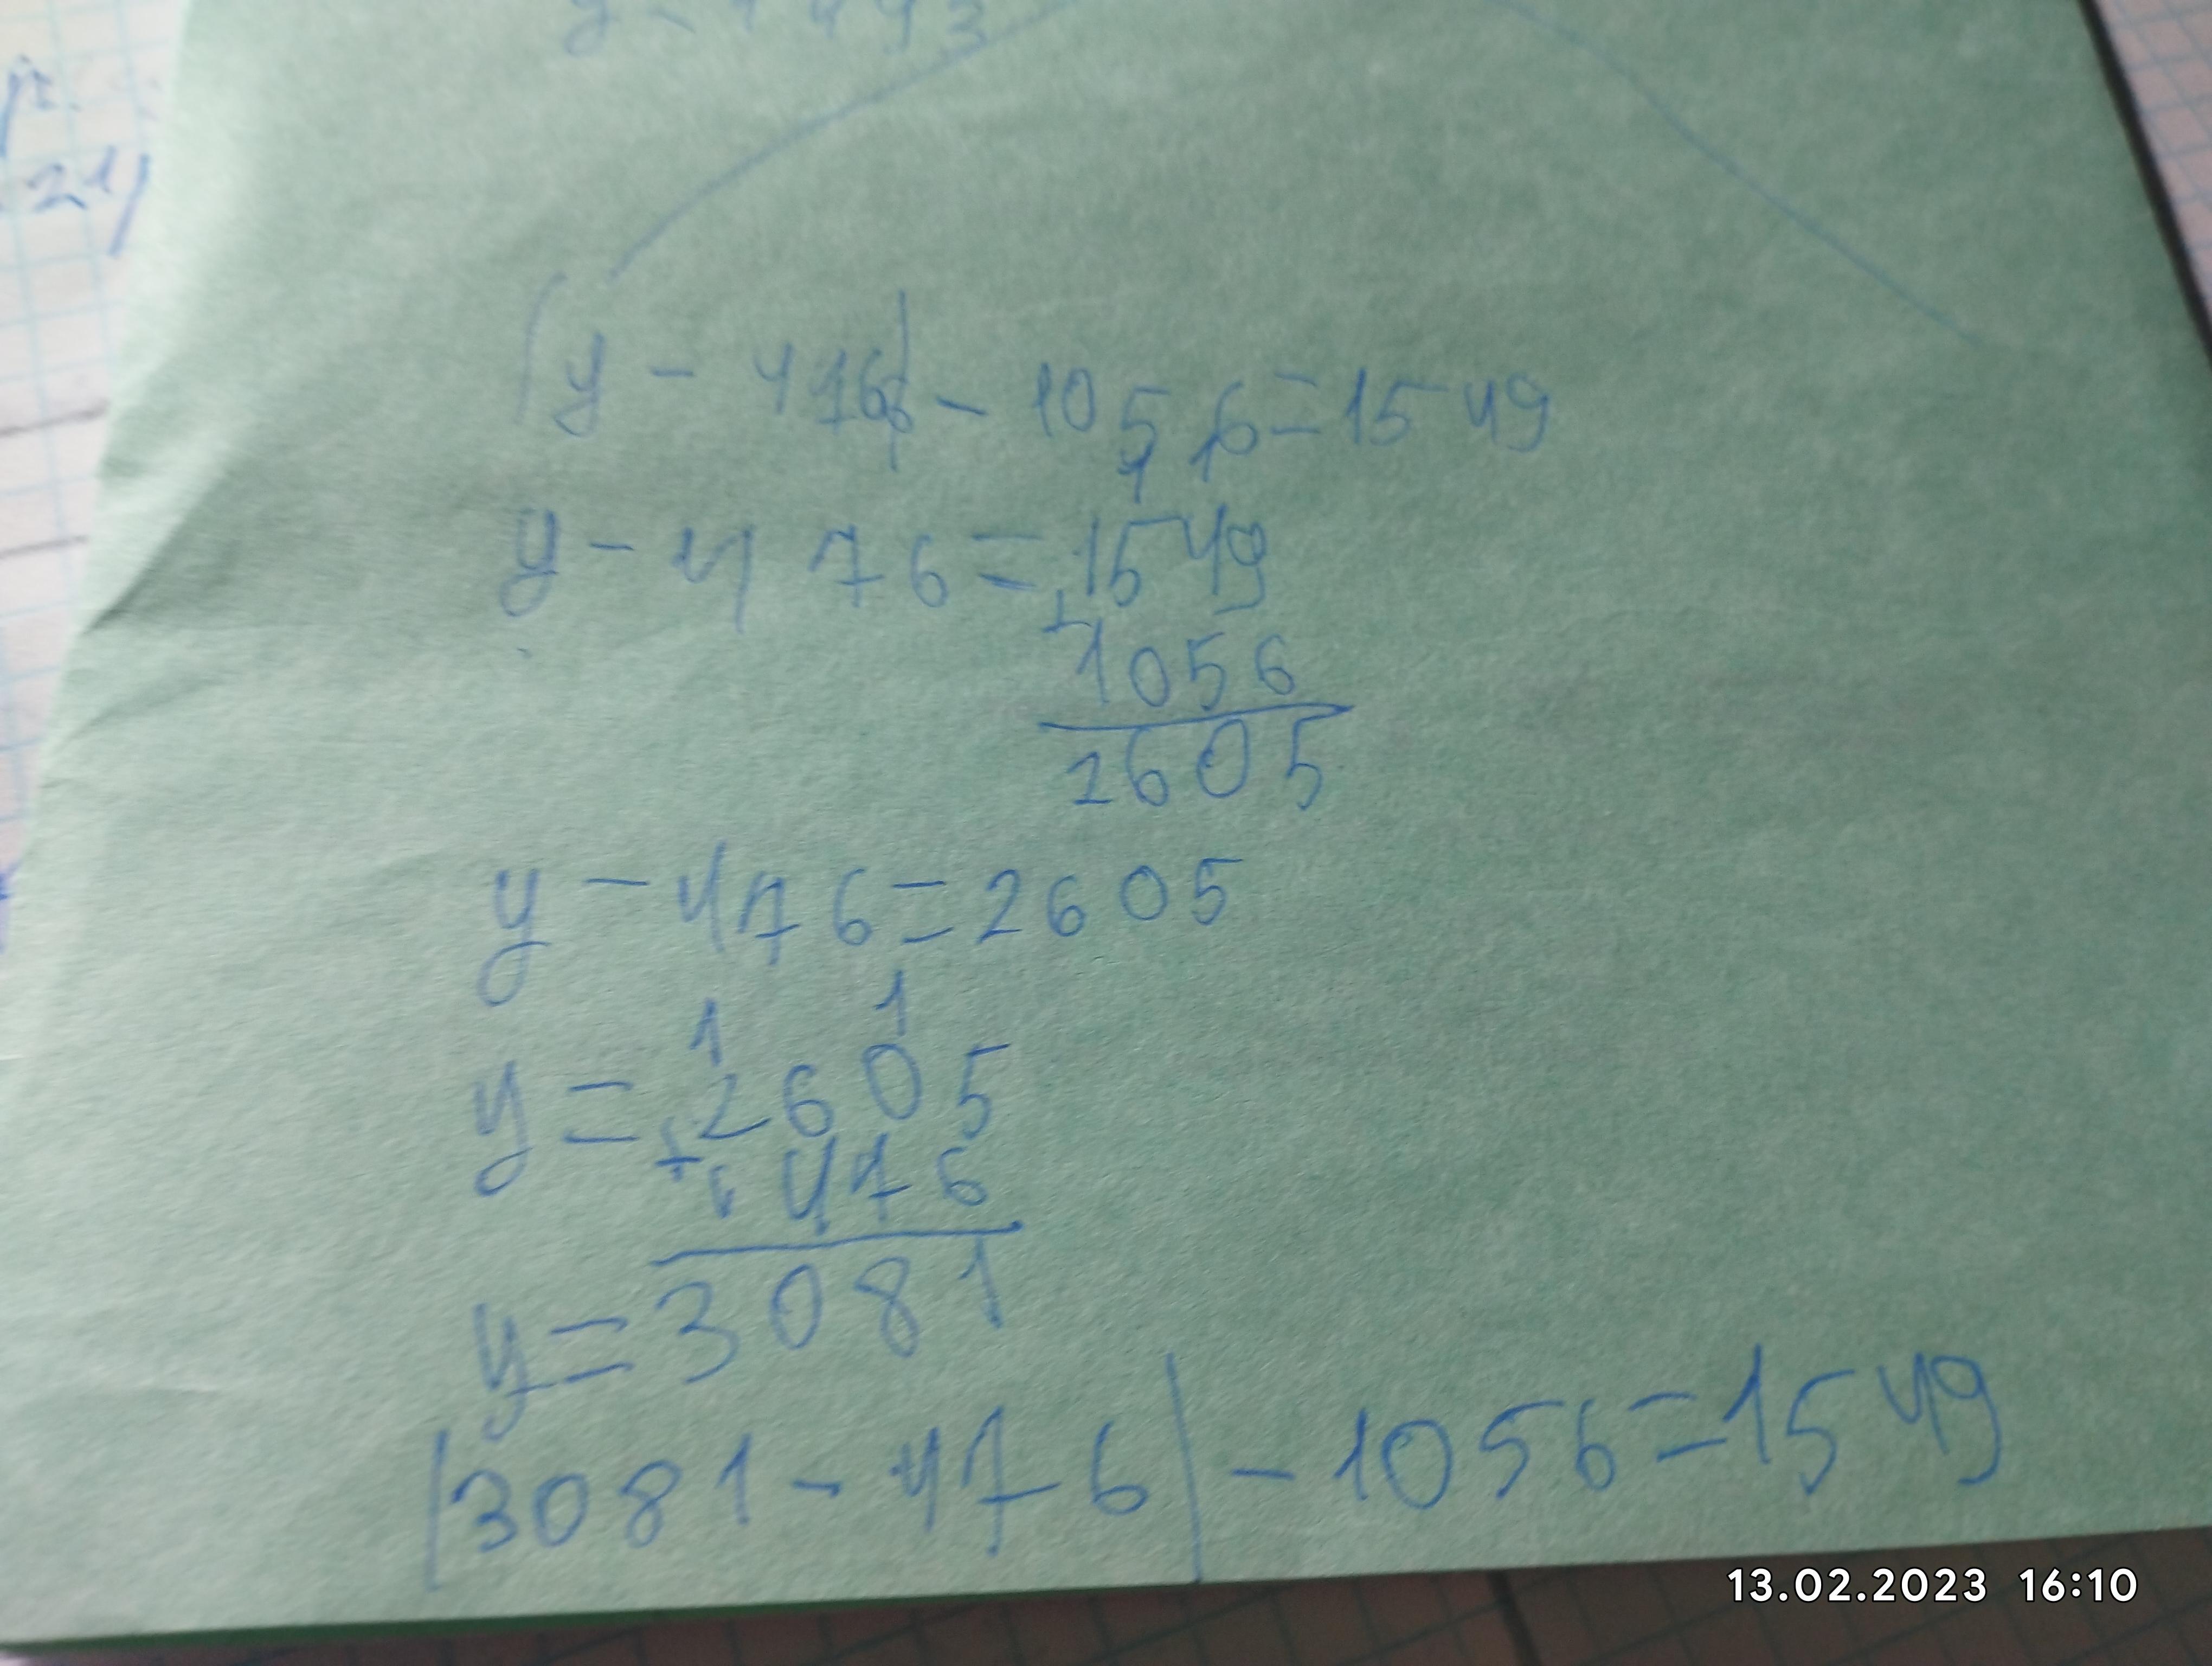 (y - 476) - 1056 = 1549
1 1
y - 476 = 1549
+
1056
2605
y - 476 = 2605
1 1
y = 2605
+
476
y = 3081
(3081 - 476) - 1056 = 1549
13.02.2023 16:10